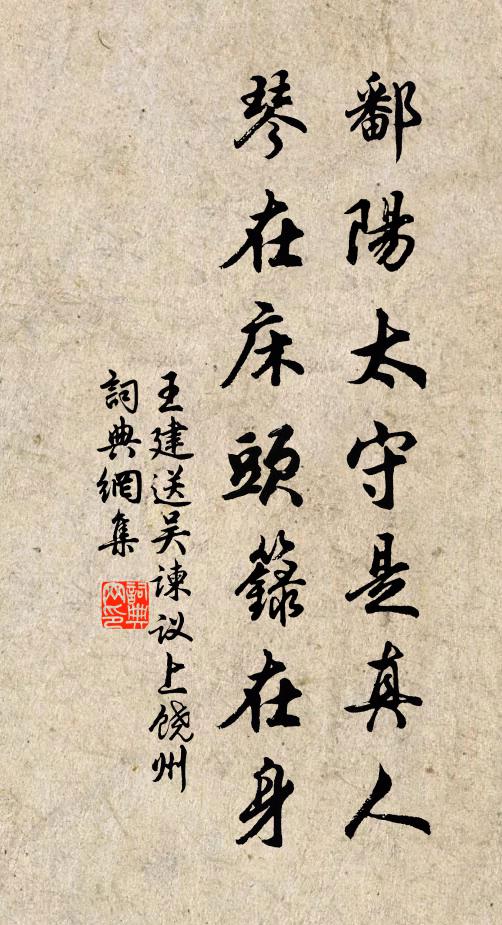 鄱陽太守是真人
琴在床頭籙在身
王建送吴諫议上饶州
詞典網集
詞典网印